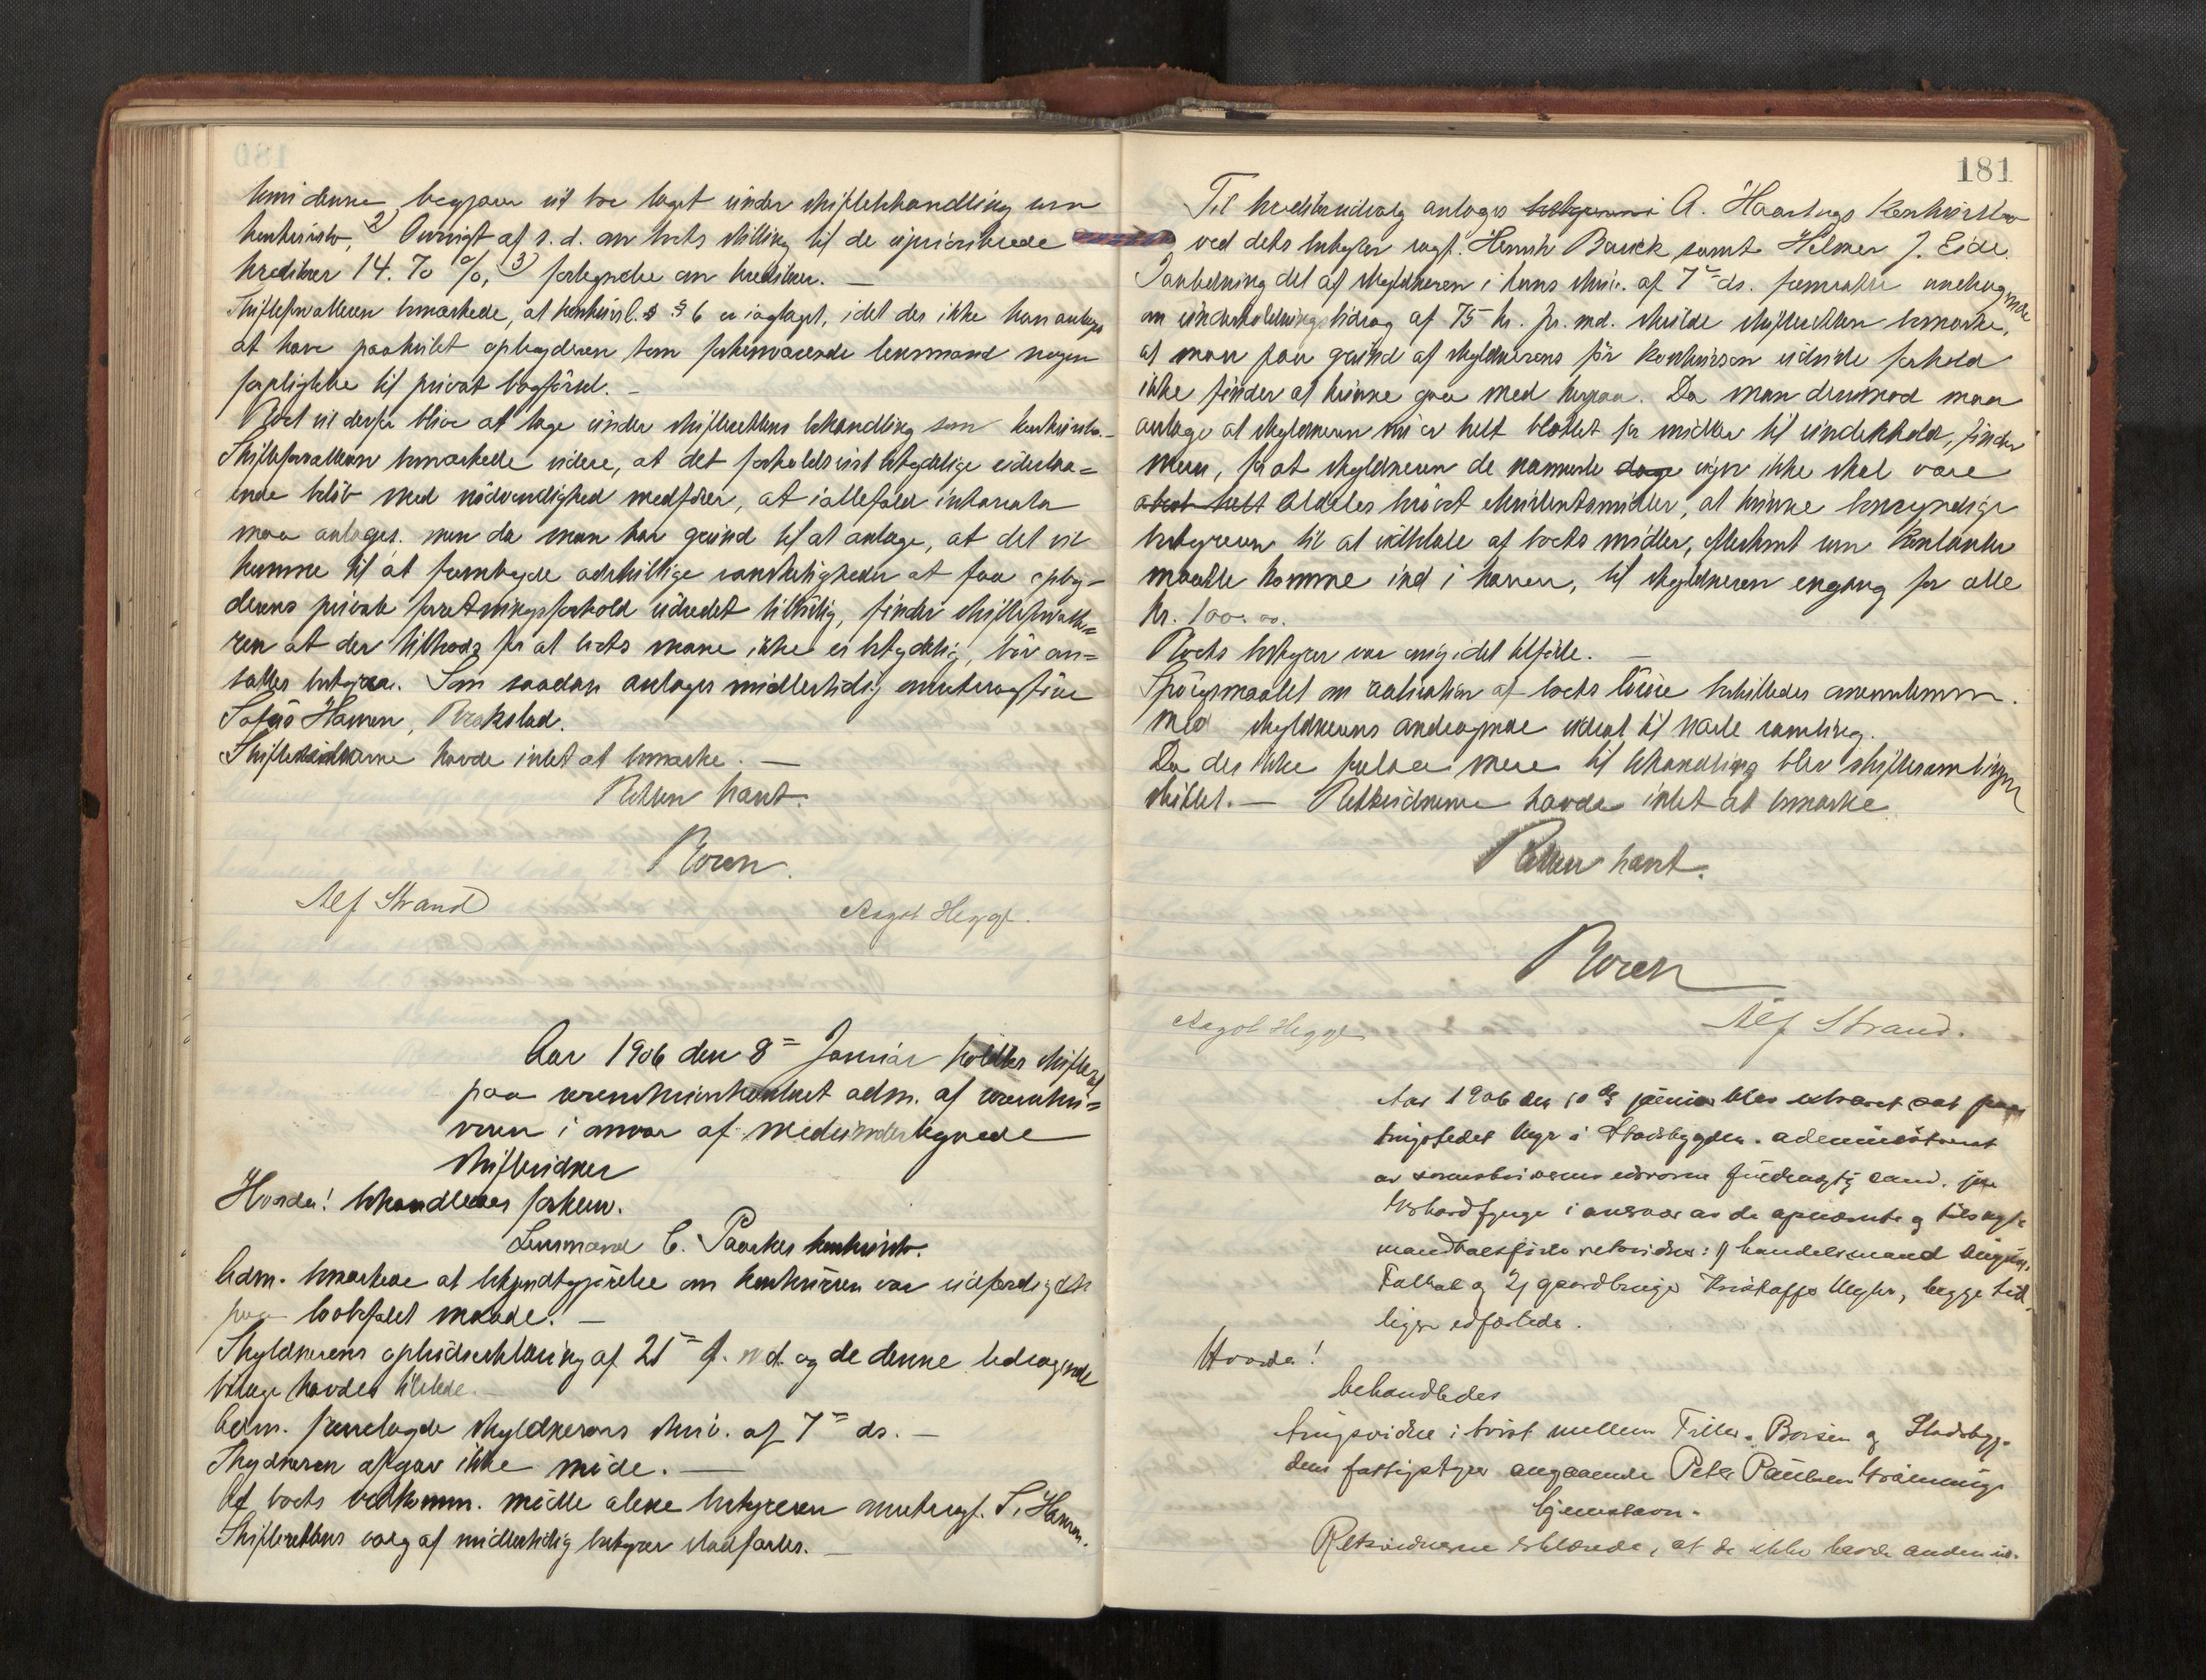 180
hvori denne begjærer sit bo taget under skiftebehandling som
konkursbo, 2) Oversigt af s. d. om boets stilling til de uprioriterede
kreditorer 14.70 %, 3) fortegnelse om kreditorer. —
Skifteforvalteren bemærkede, at konkursl. § 6 er iagtaget, idet der ikke kan antages
at have paahvilet opbyderen som forhenværende lensmand nogen
forpligtelse til privat bogførsel. —
Boet vil derfor blive at tage under skifterettens behandling som konkursbo. —
Skifteforvalteren bemærkede videre, at det forholdsvist betydelige udestaa=
ende beløb med nødvendighed medfører, at iallefald inkassator
maa antages. men da man har grund til at antage, at det vil
komme til at frembyde adskillige vanskeligheder at faa opby-
derens private forretningsforhold udredet tilbørlig, finder skifteforvalte=
ren at der tiltrods for at boets masse ikke er betydelig, bør an=
sættes bestyrer. Som saadan antages midlertidig overretssagfører
Hansen, Rrakstad.
Skiftevidnerne havde intet at bemærke. —
Retten hævet.
Roren.
Alf Strand
Aagot Hegge.
Aar 1906 den 8= Januar holdtes skifteret
paa sorenskriverkontoret adm. af sorenskri=
veren i overvær af medundertegnede
skiftevidner
Hvorda! behandledes forhen.
Lensmand C. Paaskes konkursbo.
Adm. bemærkede at bekjendtgjørelse om konkursen var udfærdigdets
paa lovbefalet maade. —
Skyldnerens opbudserklæring af 21= f. md. og de denne ledsagende
bilage havdes tilstede. —
Adm. fremlagde skyldnerens skriv. af 7= ds. —
Skyldneren afgav ikke møde. —
Af boets vedkomm. mødte alene bestyreren overretssagf. S. Hansen.
Skifterettens valg af midlertidig bestyrer stadfæstes. —
181
Til kreditorudvalg antages A. Haarstugs Konkursbo
ved dets bestyrer sagf. Henrik Bauck samt Helmer J. Eide.
I anledning det af skyldneren i hans skriv. af 7= ds. fremsatte andragende
om underholdningsbidrag af 75 kr. pr. md. skulde skifteretten bemærke,
at man paa grund af skyldnerens før konkursen udviste forhold
ikke finder at kunne gaa med herpaa. Da man derimod maa
antage at skyldneren nu er helt blottet for midler til underhold, finder
man, for at skyldneren de nærmeste dage uger ikke skal være
absol helt aldeles berøvet existentsmidler, at kunne bemyndige
bestyreren til at udbetale af boets midler, eftersom som kontanter
maatte komme ind i kassen, til skyldneren engang for alle
kr. 100.00.
Boets bestyrer var enig i det tilførte. —
Spørgsmaalet om realisation af boets løsøre besluttedes overensstemm.
med skyldnerens andragende udsat til næste samling.
Da der ikke forelaa mere til behandling blev skiftesamlingen
sluttet. — Retsvidnerne havde intet at bemærke.
Retten hævet.
Roren
Aagot Hegge
Alf Strand.
Aar 1906 den 10de januar blev extraret sat paa
tingstedet Ugs i Stadsbygden. administreret
av sorenskriverens edsvorne fuldmægtig cand. jur.
i overvær av de opnævnte og tilsagte
mandtalsførte retsvidner: 1) handelsmand August
og 2) gaardbruger Kristoffer , begge tid-
ligere edfæstede.
Hvorda!
behandledes
tingsvidne i tvist mellem Tiller, Børsen og Stadsbyg-
dens fattigstyrer angaaende Peter Paulsen
hjemstavn.
Retsvidnerne erklærede, at de ikke havde anden in-